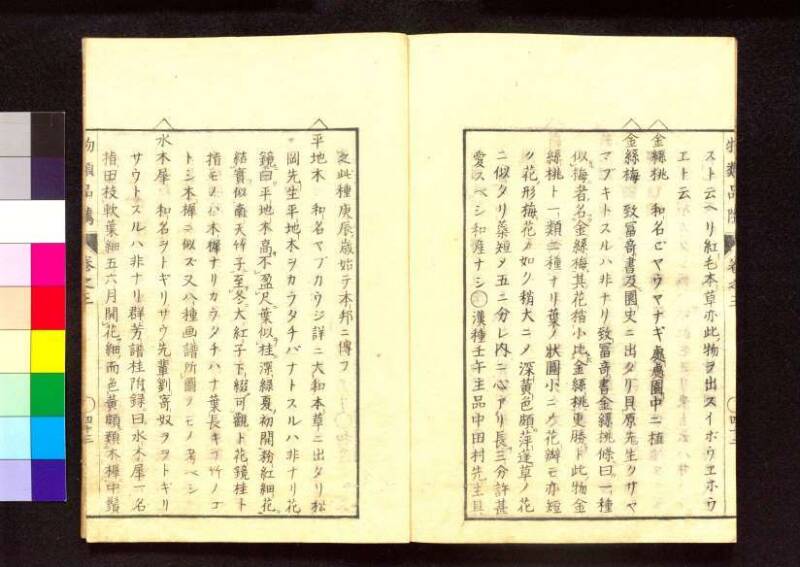 スト云ヘリ紅毛本草亦此物ヲ出スイボウヱホウ
エトト云
金絲桃 和名ビヤウヤナギ處處園中ニ植
金絲梅 致富奇書及園史ニ出タリ貝原先生クサヤ
マブキトスルハ非ナリ致富奇書金絲桃條曰一種
似梅者名金絲梅其花稍小比金絲桃更勝ト此物金
絲桃ト一類二種ナリ葉ノ狀圓小ニ乄花瓣モ亦短
ク花形梅花ノ如ク稍大ニ乄深黃色頗萍蓬草ノ花
ニ似タリ蘂短メ五ニ分レ内ニ心アリ長三分許甚
愛スベシ和產ナシ 漢種壬午主品中田村先生具
之此種庚辰歲始テ本邦ニ傳フ
平地木 和名ヤブカウジ詳ニ大和本草ニ出タリ松
岡先生平地木ヲカラタチバナトスルハ非ナリ花
鏡曰平地木高不盈尺葉似桂深綠夏初開粉紅細花
結實似南天竹子至冬大紅子下綴可觀ト花鏡桂ト
指モノハ木樨ナリカラタチハナ葉長キ
トシ木樨ニ似ズ又八種画譜所圖ヲモノ考ベシ
水木犀 和名ヲトギリサウ先輩劉寄奴ヲヲトギリ
サウトスルハ非ナリ群芳譜桂附錄曰水木犀一名
指田枝軟葉細五六月開花細而色黃頗類木樨中鬚
物類品隲 卷之三 四十三